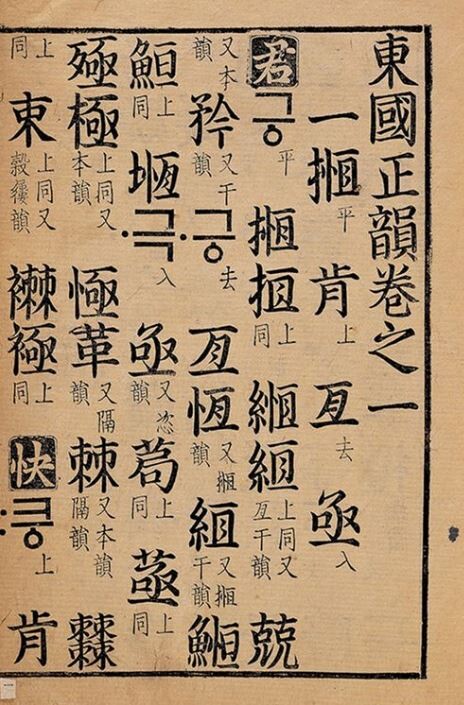 東國正韻卷之一
一揯平 肯上 亙去 亟入
君 긍平 揯 搄上同 緪 絙上同又亙干韻 兢
又本韻 矜又干韻 ·긍去 亙 恆又揯韻 絙又揯干韻
上同 堩 ·극入 亟又恣韻 苟上同 上同
殛 極上同又本韻 革又隔韻 棘又本韻隔韻
上同 上同又 襋 上同 快 :킁上 肯